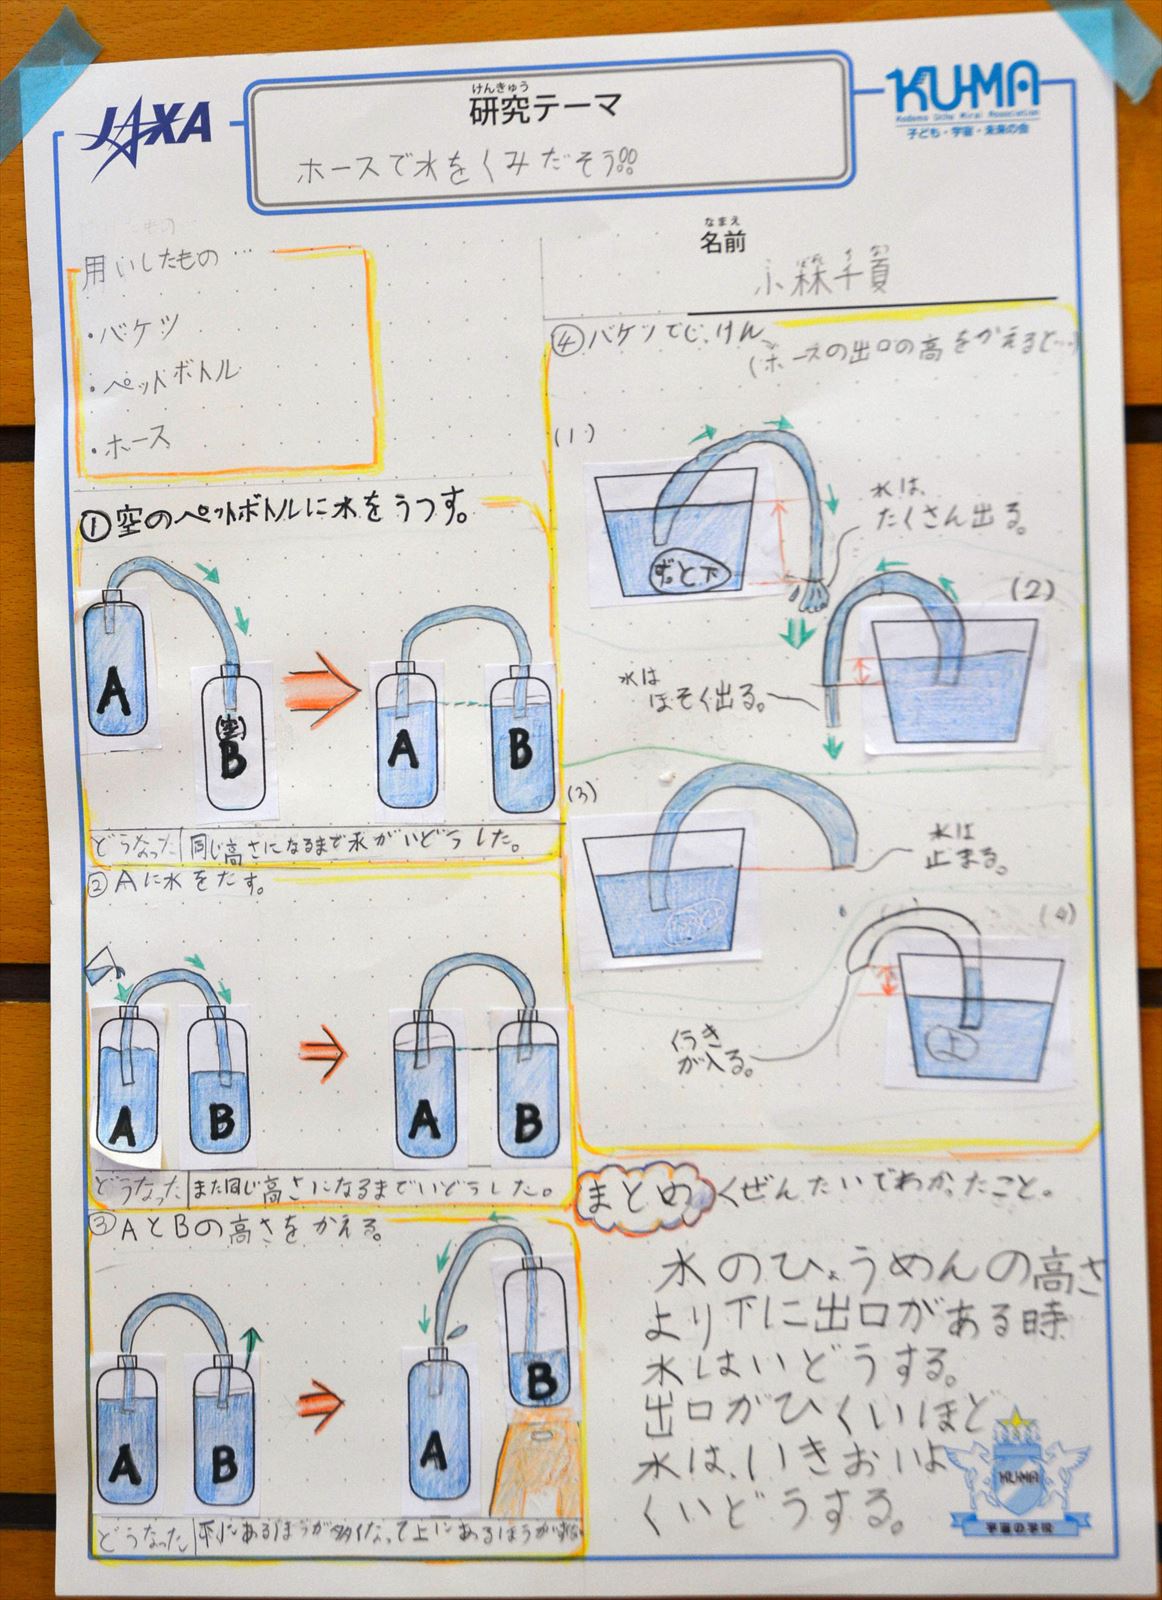 JAXA
けんきゅう
研究テーマ
ホースで水をくみだそう!!
KU-MA
Kodomo Uchu Mirai Association
子ども・宇宙・未来の会
なまえ
名前
用いしたもの…
・バケツ
・ペットボトル
・ホース
①空のペットボトルに水をうつす。
A
(空)
B
A
B
どうなった
同じ高さになるまで水がいどうした。
②Aに水をたす。
A
B
A
B
どうなった
また同じ高さになるまでいどうした。
③AとBの高さをかえる。
A
B
A
B
どうなった
下にあるほうが多くなって上にあるほうが
④バケツでじっけん
(ホースの出口の高をかえると…)
(1)
ずっと下
水は、
たくさん出る。
(2)
水は
ほそく出る。
(3)
水は
止まる。
(4)
上
空き
が入る。
まとめ
くぜんたいでわかったこと。
水のひょうめんの高さ
より下に出口がある時
水はいどうする。
出口がひくいほど
水は、いきおいよ
くいどうする。
KU-MA
宇宙の学校